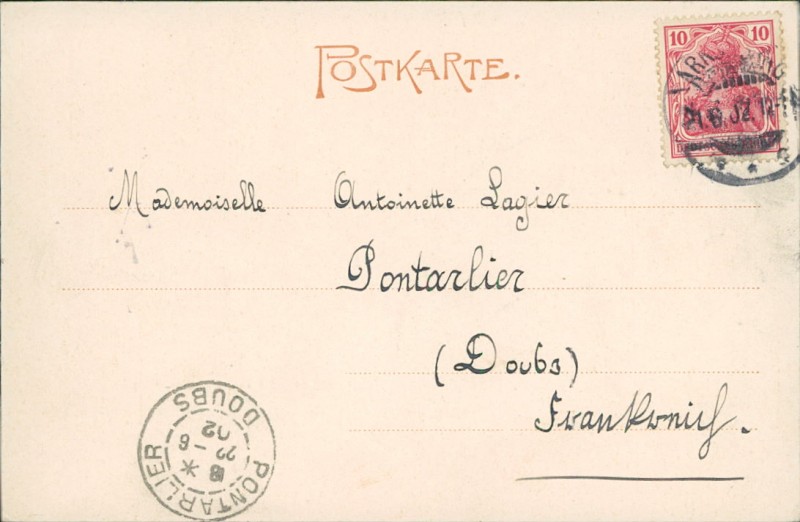 POSTKARTE.
10 10
21.6.02. 12-
Mademoiselle Antoinette Lagier
Pontarlier
(Doubs)
Frankreich.
PONTARLIER
DOUBS
22 - 6
02